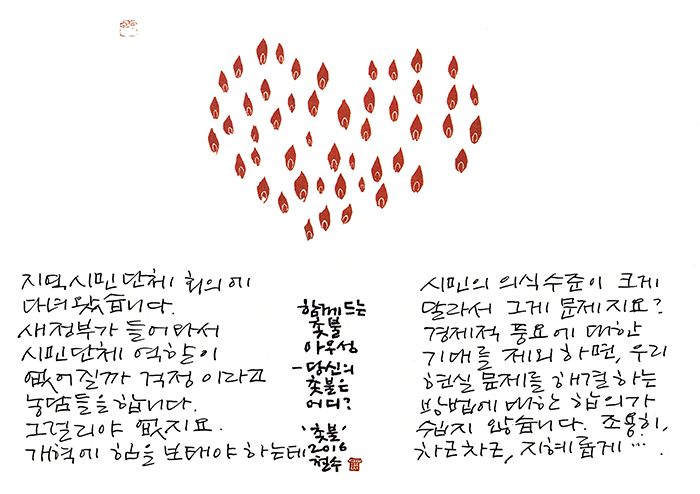 지역시민단체 회의에
다녀왔습니다.
새정부가 들어와서
시민단체 역할이
없어질까 걱정이라고
농담들을 합니다.
그럴리야 없지요.
개혁에 힘을 보태야 하는데
함께드는
촛불
아우성
- 당신의
촛불은
어디?
'촛불'
2016
철수
시민의 의식수준이 크게
달라서 그게 문제지요?
경제적 풍요에 대한
기대를 제외하면, 우리
현실 문제를 해결하는
방법에 대한 합의가
쉽지 않습니다. 조용히,
차근차근, 지혜롭게…